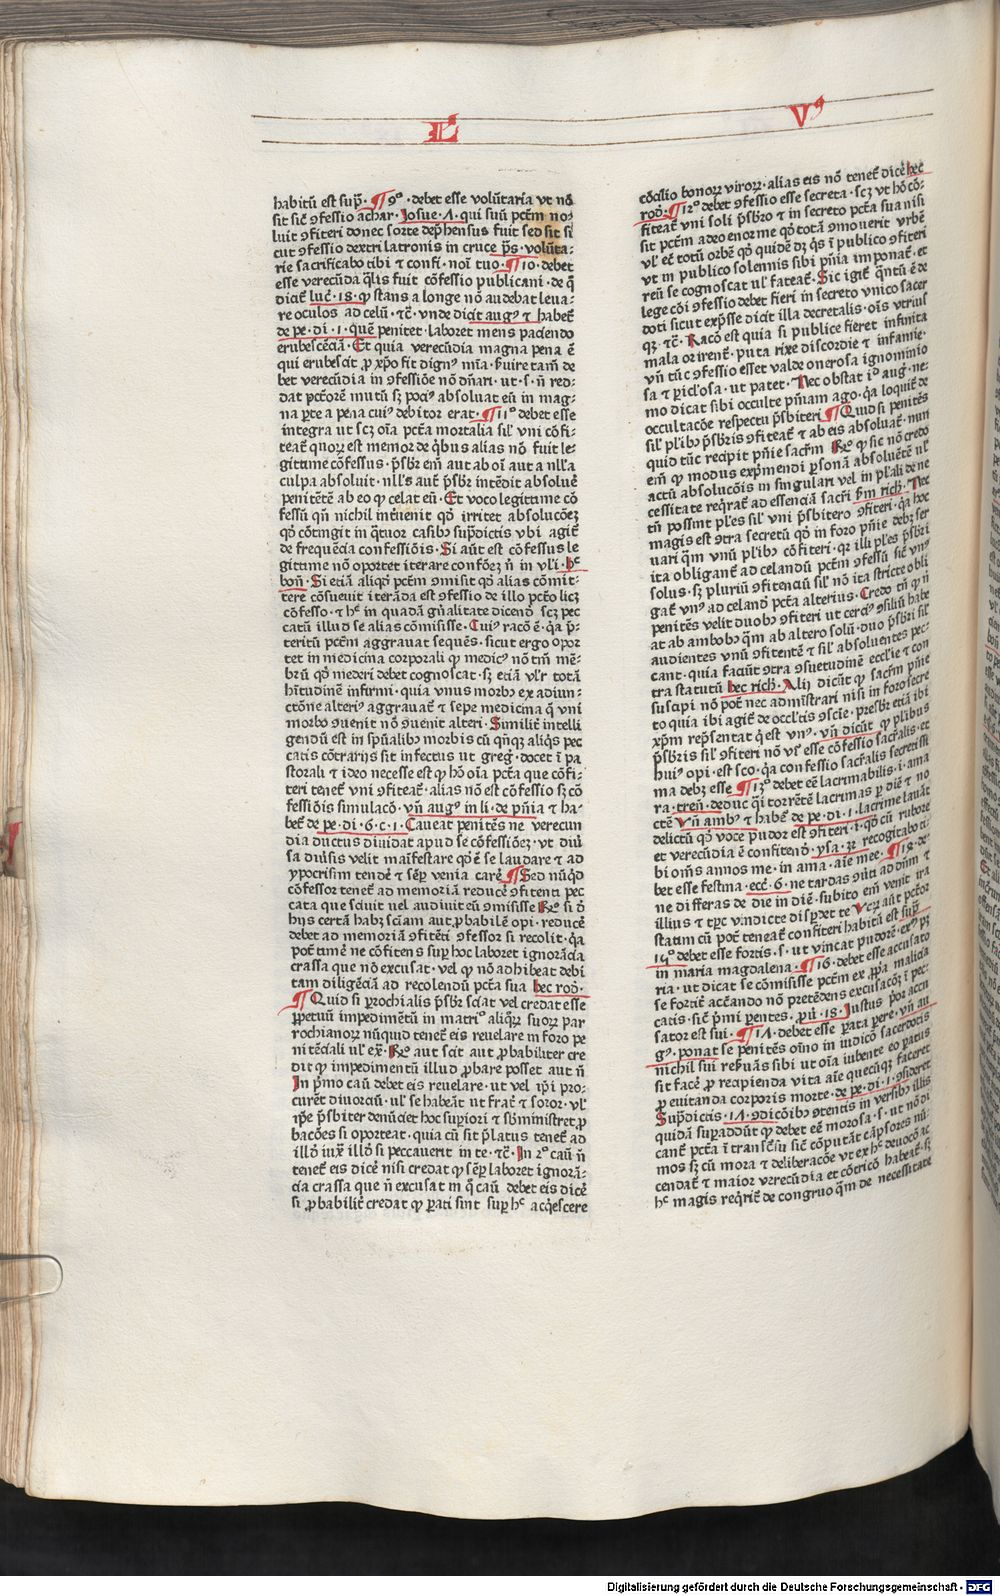 L V⁹
habitū est sup̄. ¶ 9º. debet esse volūtaria vt nō
sit sic̄ ꝯfessio achar. Iosue. Λ. qui suū pctm̄ no-
luit ꝯfiteri donec sorte dep̄hensus fuit sed sit si
cut ꝯfessio dextri latronis in cruce p̄s. volūta-
rie sacrificabo tibi ⁊ confi. noī tuo. ¶ 10. debet
esse verecūda q̄lis fuit cōfessio publicani. de q̄
dicit̄ luc̄. 18. ꝙ stans a longe nō audebat leua-
re oculos ad celū. ⁊c̄. vnde dicit aug⁹ ⁊ habet̄
de pe. di. 1. quē penitet. laboret mens paciendo
erubescēciā. Et quia verecūdia magna pena ē
qui erubescit ꝓ xp̄o fit dign⁹ mīa. p̄uire tam̄ de
bet verecūdia in ꝯfessiōe nō dn̄ari. ut. s. n̄ red-
dat pctōrē mutū sꝫ poci⁹ absoluat eū in mag-
na ꝑte a pena cui⁹ debitor erat. ¶ 11º debet esse
integra ut scꝫ oīa pctā mortalia sil̄ vni cōfi-
teat̄ quoꝝ est memor de q̄bus alias nō fuit le-
gittime cōfessus. p̄sbr̄ em̄ aut ab oī aut a nll̄a
culpa absoluit. nll̄s aut̄ p̄sbr̄ intēdit absoluē
penitētē ab eo ꝙ celat eū. Et voco legittime cō
fessū qn̄ nichil inuenit qd̄ irritet absolucōeꝫ
qd̄ cōtingit in q̄tuor casibꝰ sup̄dictis vbi agit̄
de frequēcia confessiōis. Si aūt est cōfessus le
gittime nō oportet iterare confōeꝫ n̄ in vl̄i. hᶜ
bon̄. Si etiā aliqd̄ pctm̄ ꝯmisit qd̄ alias cōmit-
tere cōsueuit iterāda est ꝯfessio de illo pctō licꝫ
cōfesso. ⁊ hᶜ in quadā gn̄alitate dicendº scꝫ pec
catū illud se alias cōmisisse. Cui⁹ racō ē. q̄a p̄-
teritū pctm̄ aggrauat sequēs. sicut ergo opor
tet in medicina corporali ꝙ medic⁹ nō tm̄ mē-
brū qd̄ mederi debet cognoscat. sꝫ etiā vl̄r totā
hītudinē infirmi. quia vnus morbꝰ ex adiun-
ctōne alteri⁹ aggrauat̄ ⁊ sepe medicina q̄ vni
morbo ꝯuenit nō ꝯuenit alteri. Similit̄ intelli
gendū est in spūalibꝰ morbis cū qn̄qꝫ aliq̄s pec
catis cōtrarijs sit infectus ut greg̅. docet ī pa
storali ⁊ ideo necesse est ꝙ hō oīa pctā que cōfi-
teri tenet̄ vni ꝯfiteat̄. alias nō est cōfessio sꝫ cō
fessiōis simulacō. vn̄ aug⁹ in li. de pn̄ia ⁊ ha-
bet̄ de pe. di. 6. c. 1. Caueat penitēs ne verecun
dia ductus diuidat apud se cōfessiōeꝫ. vt diū
sa diūsis velit maīfestare qd̄ ē se laudare ⁊ ad
ypocrisim tendē ⁊ sēꝑ venia carē. ¶ Sed nūqd̄
cōfessor tenet̄ ad memoriā reducē ꝯfitenti pec
cata que sciuit vel audiuit eū ꝯmisisse Rº si ð
hijs certā habꝫ sciam aut ꝓbabilē opi. reducē
debet ad memoriā ꝯfitēti ꝯfessor si recolit. q̄a
pot̄ timē ne cōfitens suꝑ hoc laboret ignorācia
crassa que nō excusat. vel ꝙ nō adhibeat debi
tam diligēciā ad recolendū pctā sua hec rod̄.
¶ Quid si ꝑrochialis p̄sbr̄ sciat vel credat esse
ꝑpetuū impedimētū in matriº aliqꝝ suoꝝ par
rochianoꝝ nūquid tenet̄ eis reuelare in foro pe
nitēciali ul̄ ex̄. Rº aut scit aut ꝓbabiliter cre
dit ꝙ impedimentū illud ꝓbare posset aut n̄
In pͥmo caū debet eis reuelare. ut vel ip̄i pro-
curēt diuorciū. ul̄ se habeāt ut frat̄ ⁊ soror. vl̄
ip̄e p̄sbiter denūciet hoc suꝑiori ⁊ sbͥministret ꝓ
bacōes si oporteat. quia cū sit p̄latus tenet̄ ad
illð iux̄ illð si peccauerit in te. ⁊c̄. In 2º caū n̄
tenet̄ eis dicē nisi credat ꝙ sēꝑ laboret ignorā-
cia crassa que n̄ excusat in q̄ caū debet eis dicē
si ꝓbabilit̄ credat ꝙ ꝑati sint suꝑ hᶜ acq̄escere
cōcilio bonoꝝ viroꝝ. alias eis nō tenet̄ dicē hec
rod̄. ¶ 12º debet ꝯfessio esse secreta. scꝫ vt hō cō-
fiteat̄ vni soli p̄sbr̄o ⁊ in secreto pctā sua nisi
sit pctm̄ adeo enorme qd̄ totā ꝯmouerit vrbē
vl̄ eē totū orbē qd̄ quidē dꝫ q̄s ī publico ꝯfiteri
vt in publico solennis sibi pn̄ia imponat̄. et
reū se cognoscat ul̄ fateat̄. Sic igit̄ q̄ntū ē de
lege cōi ꝯfessio debet fieri in secreto vnico sacer
doti sicut exp̄sse dicit illa decretalis. oīs vtrius
qꝫ. ⁊c̄. Racō est quia si publice fieret infinita
mala orirent̄. puta rixe discordie ⁊ infamie.
vn̄ tūc ꝯfessio esset valde onerosa ignominio
sa ⁊ ꝑicl̄osa. ut patet. Nec obstat iº aug̅. ne-
mo dicat sibi occulte pn̄iam ago. q̄a loquit̄ de
occultacōe respectu p̄sbiteri. ¶ Quid si penitēs
sil̄ pl̄ibꝰ p̄sbr̄is ꝯfiteat̄ ⁊ ab eis absoluat̄. nun
quid tūc recipit pn̄ie sacrm̄ Rº ꝙ sic nō credo
em̄ ꝙ modus exp̄mendi ꝑsonā absoluētē ul̄
actū absolucōis in singulari vel in pl̄ali de ne
cessitate reqͥrat̄ ad essenciā sacri p̄m rich̄. Nec
tn̄ possint pl̄es sil̄ vni p̄sbitero ꝯfiteri. q̄a hoc
magis est ꝯtra secretū qd̄ in foro pn̄ie debꝫ ser
uari q̄m vnū pl̄ibꝰ cōfiteri. qꝛ illi pl̄es p̄sbr̄i
ita obligant̄ ad celandū pctm̄ ꝯfessū sic̄ vn⁹
solus. sꝫ pluriū ꝯfitenciū sil̄ nō ita stricte obli
gat̄ vn⁹ ad celandº pctā alterius. Credo tn̄ ꝙ n̄
penitēs velit duobꝰ ꝯfiteri ut cerci⁹ ꝯsiliū habe
at ab ambobꝰ q̄m ab altero solū. duo p̄sbr̄i sil̄
audientes vnū ꝯfitentē ⁊ sil̄ absoluentes pec-
cant. quia faciūt ꝯtra ꝯsuetudinē eccl̄ie ⁊ con
tra statutū hec rich̄. Alij dicūt ꝙ sacrm̄ pn̄ie
suscipi nō pot̄ nec administrari nisi in foro secre
to quia ibi agit̄ de occl̄tis ꝯscīe. presbr̄ etiā ibi
xp̄m rep̄sentat q̄ est vn⁹. vn̄ dicūt ꝙ pl̄ibus
p̄sbris sil̄ ꝯfiteri nō vr̄ esse cōfessio sacr̄alis. et
hui⁹ opi. est sco. q̄a confessio sacr̄alis secretissi
ma debꝫ esse ¶ 13º debet eē lacrimabilis. i. ama
ra. tren̄. deduc q̄i torrētē lacrimas ꝑ diē ⁊ no
ctē Vn̄ amb⁹ ⁊ habet̄ de pe. di. 1. lacrime lauāt
delictū qd̄ voce pudor est ꝯfiteri. i. qd̄ cū rubore
et verecūdia ē confitendº. ysa. 38. recogitabo ti-
bi om̄s annos me. in ama. aīe mee. ¶ 14. de-
bet esse festina. ecc̄. 6. ne tardas ꝯūti ad dn̄m ⁊
ne differas de die in diē. subito em̄ venit ira
illius ⁊ tꝑe vindicte disꝑdet te Vtꝝ aut̄ pctōr
statim cū pot̄ teneat̄ confiteri habitū est sup̄.
15º debet esse fortis. s. ut vincat pudorē. ex⁹ pꝫ
in maria magdalena. ¶ 16. debet esse accusato
ria. ut dicat se cōmisisse pctm̄ ex ꝓpͥa malicia
se fortit̄ accēando nō pretēdens excusacōꝫ ī pec-
catis. sic̄ pͥmi ꝑentes. ꝓū. 18. Iustus pͥor accu
sator est sui. ¶ 1Λ. debet esse ꝑata ꝑere. vn̄ au
g⁹. ponat se penitēs oīno in iudicō sacerdotis
nichil sui reẜuās sibi ut oīa iubente eo ꝑatus
sit facē ꝓ recipienda vita aīe quecūqꝫ faceret
ꝓ euitanda corporis morte. de pe. di. 1. ꝯsideret
Sup̄dictis. 1Λ. ꝯdicōibꝰ ꝯtentis in versibꝰ illis
quidā suꝑaddūt ꝙ debet eē morosa. s. ut nō di
cant̄ pctā ī transc̄su sic̄ cōputāt cāpsores nū-
mos sꝫ cū mora ⁊ deliberacōe vt ex hᶜ deuocō ac
cendat̄ ⁊ maior verecūdia et cōtricō habeat̄. sꝫ
hᶜ magis reqͥrit̄ de congruo q̄m de necessitate
Digitalisierung gefördert durch die Deutsche Forschungsgemeinschaft - DFG